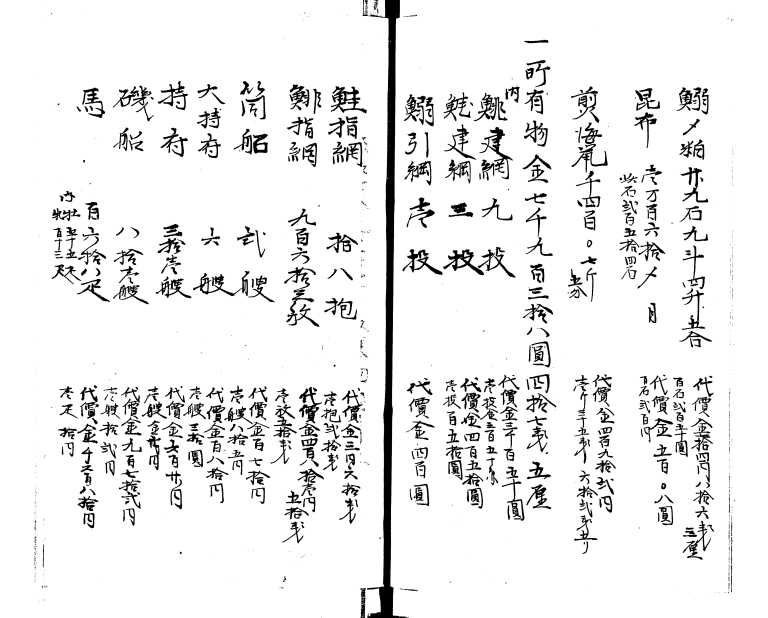 鰯〆粕 廿九石九斗四升五合
代價金拾四円八拾六銭三厘
百石弐百五十圓
昆布 壱万百六拾〆目
此石弐百五拾四石
代價金五百〇八圓
百石弐百円
煎海鼠 千四百〇七斤五分
代價金四百九拾弐円六拾弐銭五り
壱斤三五銭
一所有物金七千九百三拾八圓四拾七銭五厘
内
鯡建網 九投
代價金三千百五十圓
壱投金三百五十圓
鮭建網 三投
代價金四百五拾圓
壱投百五拾圓
鰯引網 壱投
代價金四百圓
鮭指網 拾八抱
代價金三円六拾銭
壱抱弐拾銭
鯡指網 九百六拾三敉
代價金四百八拾壱円五拾銭
壱敉五拾銭
筒船 弐艘
代價金百七拾円
壱艘八拾五円
大持府 六艘
代價金百八拾円
壱艘三拾圓
持府 三拾壱艘
代價金六百廿円
壱艘金弐拾円
磯船 八拾壱艘
代價金九百七拾弐円
壱艘拾弐円
馬 百六拾八疋
内牡五十五疋
牝百十三疋
代價金千六百八拾円
壱疋拾円